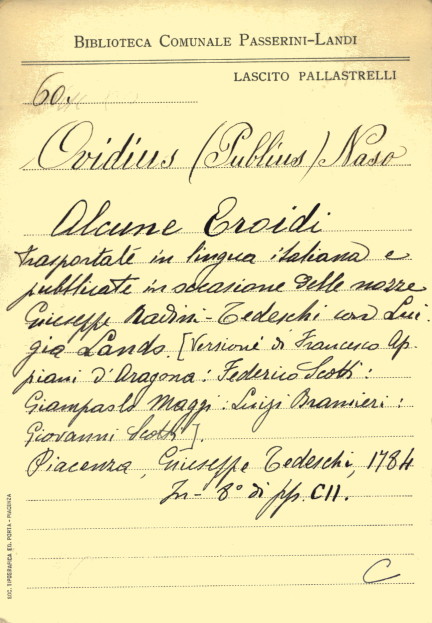 BIBLIOTECA COMUNALE PASSERINI-LANDI
LASCITO PALLASTRELLI
60.
Ovidius (Publius) Naso
Alcune Eroidi
trasportate in lingua italiana e
pubblicate in occasione delle nozze
Giuseppe Radini-Tedeschi con Lui-
gia Lands. [Versione di Francesco Ap
piani d'Aragona: Federico Scotti:
Giampaolo Maggi: Luigi Bramieri:
Giovanni Scotti].
Piacenza, Giuseppe Tedeschi, 1784
In-8° di pp. CII.
C
SOC. TIPOGRAFICA ED. PORTA - PIACENZA